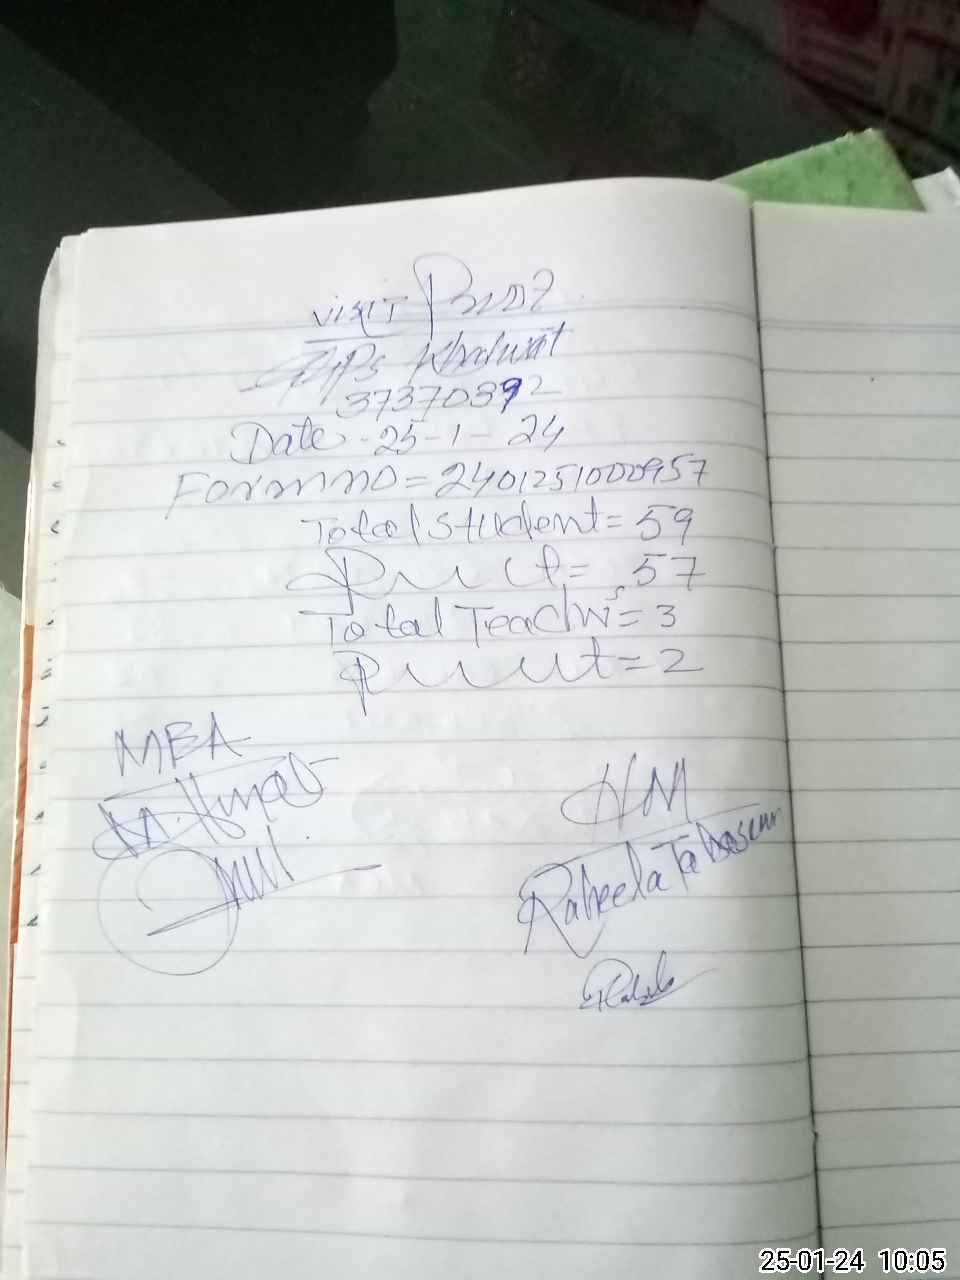 visit Proof
GGPS Khalwat
37370392
Date - 25-1-24
Form no = 2401251000957
Total student = 59
Present = 57
Total Teachers = 3
Present = 2
MEA
HM
Raheela Tabasum
25-01-24 10:05